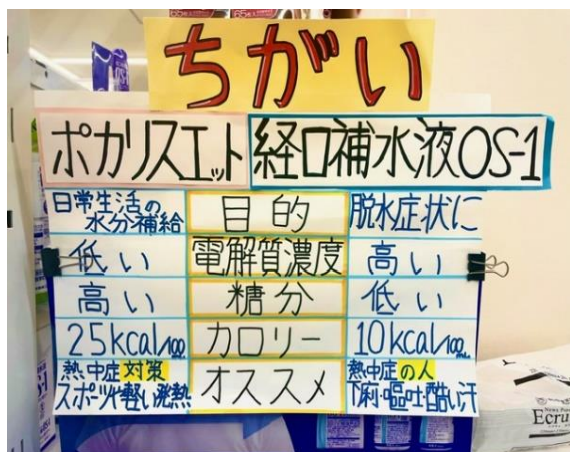 ちがい
ポカリスエット 経口補水液OS-1
日常生活の 水分補給 目的 脱水症状に
低い 電解質濃度 高い
高い 糖分 低い
25kcal/100 カロリー 10kcal/100
熱中症対策 オススメ 熱中症の人
スポーツや軽い発熱 下痢・嘔吐・酷い汗
Ecru